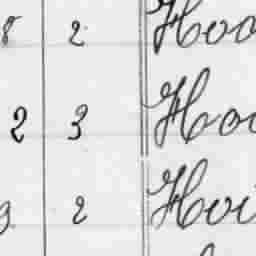 8 2 Hoo
2 3 Hoo
9 2 Hoi